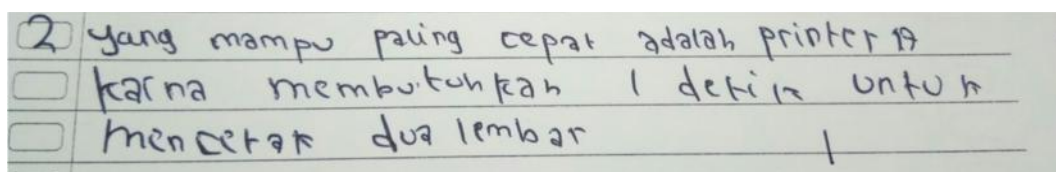 2 yang mampu paling cepat adalah printer A
karna membutuhkan 1 detik untuk
mencetak dua lembar